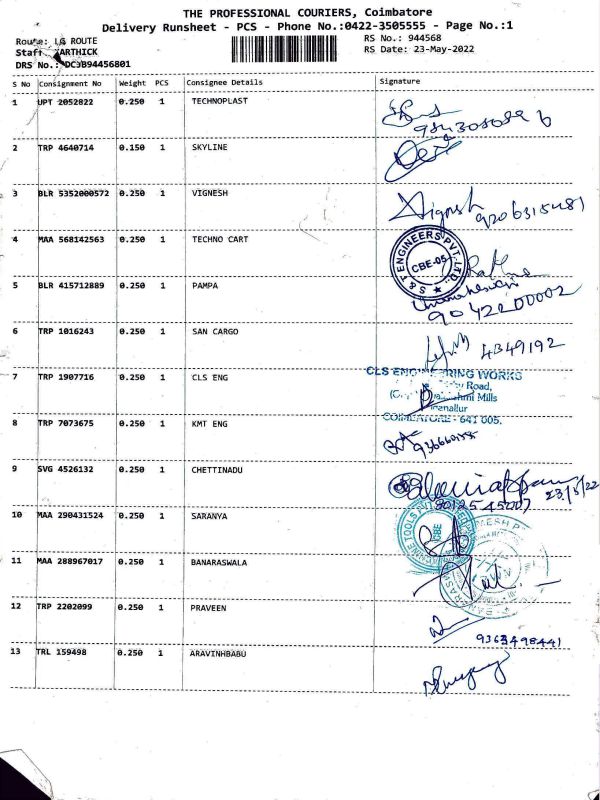 THE PROFESSIONAL COURIERS, Coimbatore
Delivery Runsheet - PCS - Phone No.:0422-3505555 - Page No.:1
Route: LG ROUTE
RS No.: 944568
Staff KARTHICK
RS Date: 23-May-2022
DRS No.: DCJB94456801
S No Consignment No Weight PCS Consignee Details Signature
1 UPT 2052822 0.250 1 TECHNOPLAST
2 TRP 4640714 0.150 1 SKYLINE
3 BLR 5352000572 0.250 1 VIGNESH
Vignesh 9206315481
4 MAA 568142563 0.250 1 TECHNO CART
S & T ENGINEERS PVT. LTD.
CBE-05
5 BLR 415712889 0.250 1 PAMPA
9042200002
6 TRP 1016243 0.250 1 SAN CARGO
4349192
7 TRP 1907716 0.250 1 CLS ENG
CLS ENGINEERING WORKS
Road,
Mills
COIMBATORE - 641 005.
8 TRP 7073675 0.250 1 KMT ENG
9 SVG 4526132 0.250 1 CHETTINADU
23/5/22
10 MAA 290431524 0.250 1 SARANYA
CBE
11 MAA 288967017 0.250 1 BANARASWALA
12 TRP 2202099 0.250 1 PRAVEEN
9363498441
13 TRL 159498 0.250 1 ARAVINHBABU